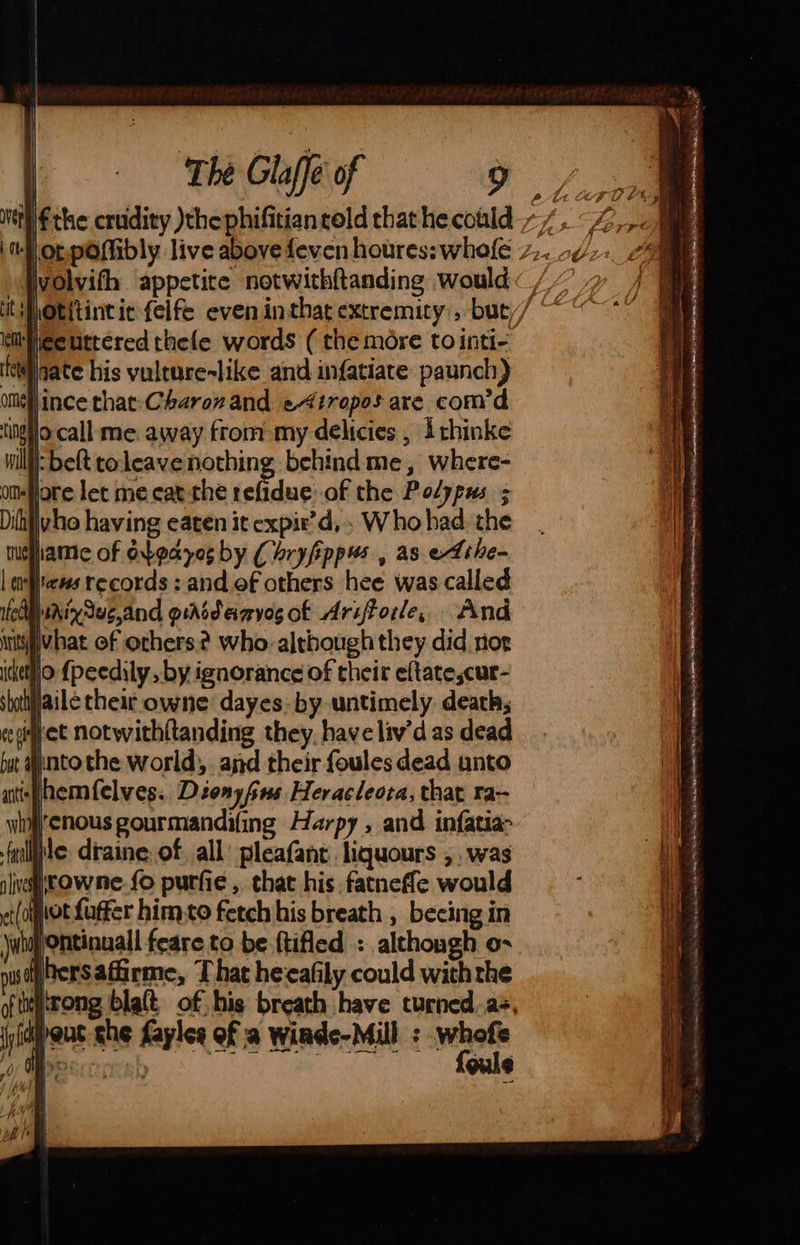 The Glaſſe of 9
if the crudity) the phiſitian told that he could
or poſſibly live above ſeven houres: whoſe
volviſh appetite notwithſtanding would
otſtint it ſelfe even in that extremity, but
ee uttered theſe words (the more to inti-
nate his vulture-like and inſatiate paunch)
ince that Charon and Atropos are com'd
o call me away from my delicies, I thinke
t beſt to leave nothing behind me, where-
ore let me eat the reſidue of the Polypus;
vho having eaten it expir'd. Who had the
name of ὀψοφάγος by Chryſippus, as Athe-
records: and of others hee was called
and of Ariſtotle. And
vhat of others? who although they did not
o ſpeedily, by ignorance of their eſtate, cur-
aile their owne dayes by untimely death,
et notwithſtanding they have liv'd as dead
into the world, and their ſoules dead unto
hemſelves. Dionyſius Heracleota, that ra-
enous gourmandiſing Harpy, and inſatia-
le draine of all pleaſant liquours, was
rowne ſo purſie, that his fatneſſe would
ot ſuffer him to fetch his breath, beeing in
ontinuall feare to be ſtifled: although o-
hers affirme, That he eaſily could with the
trong blaſt of his breath have turned a-
out the ſayles of a winde-Mill: whoſe
ſoule